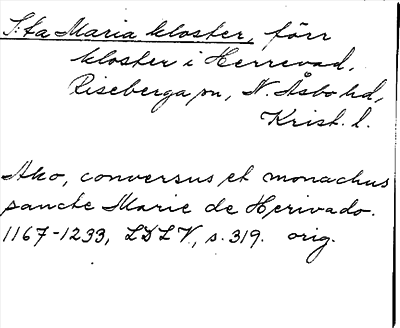 S:ta Maria kloster, förr
kloster i Herrevad,
Riseberga sn, N. Åsbo hd,
Krist. l.
Ako, conversus et monachus
sancte Marie de Herivado.
1167-1233, LDLV, s. 319. orig.